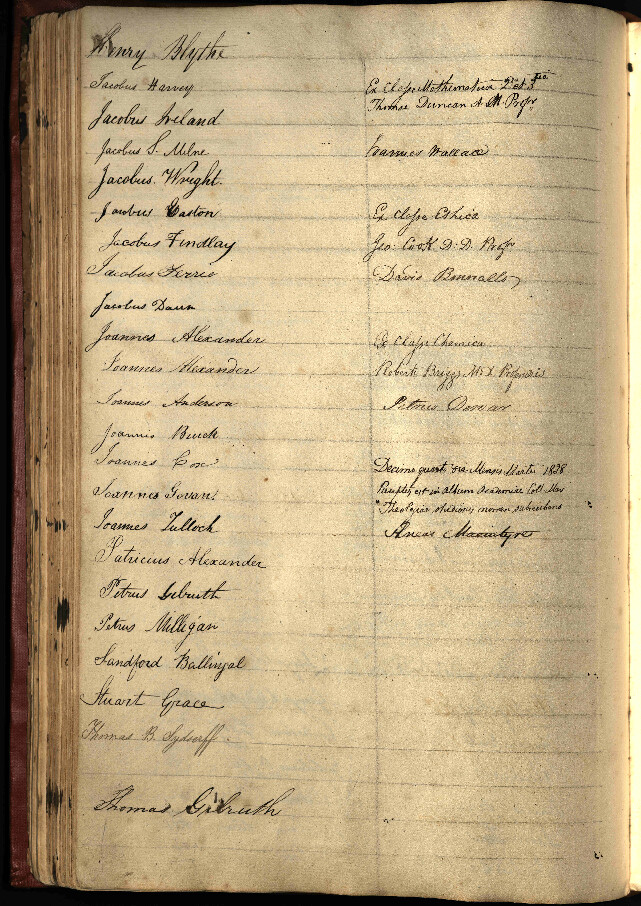 Henry Blythe
Jacobus Harvey
Jacobus Ireland
Jacobus S. Milne
Jacobus Wright
Jacobus Easton
Jacobus Findlay
Jacobus Ferrie
Jacobus Daun
Joannes Alexander
Joannes Alexander
Joannes Anderson
Joannis Buick
Joannes Cox
Joannes Govan
Joannes Tulloch
Patricius Alexander
Petrus Gilruth
Petrus Milligan
Sandford Ballingal
Stuart Grace
Thomas B. Sydserff
Thomas Gilruth
Ex Classe Mathematica 2da et 3tia
Thomae Duncan A M Profr
Joannes Wallace
Ex Classe Ethica
Geo: Cook D: D. Profr
David
Ex Classe Chemica
Roberti Briggs M D Professoris
Petrus
Decimo quinto Menses Martii 1838
est in album Academiae Coll Mar
Theologiae studiosus nomen subscribens
Aneas Macintyre